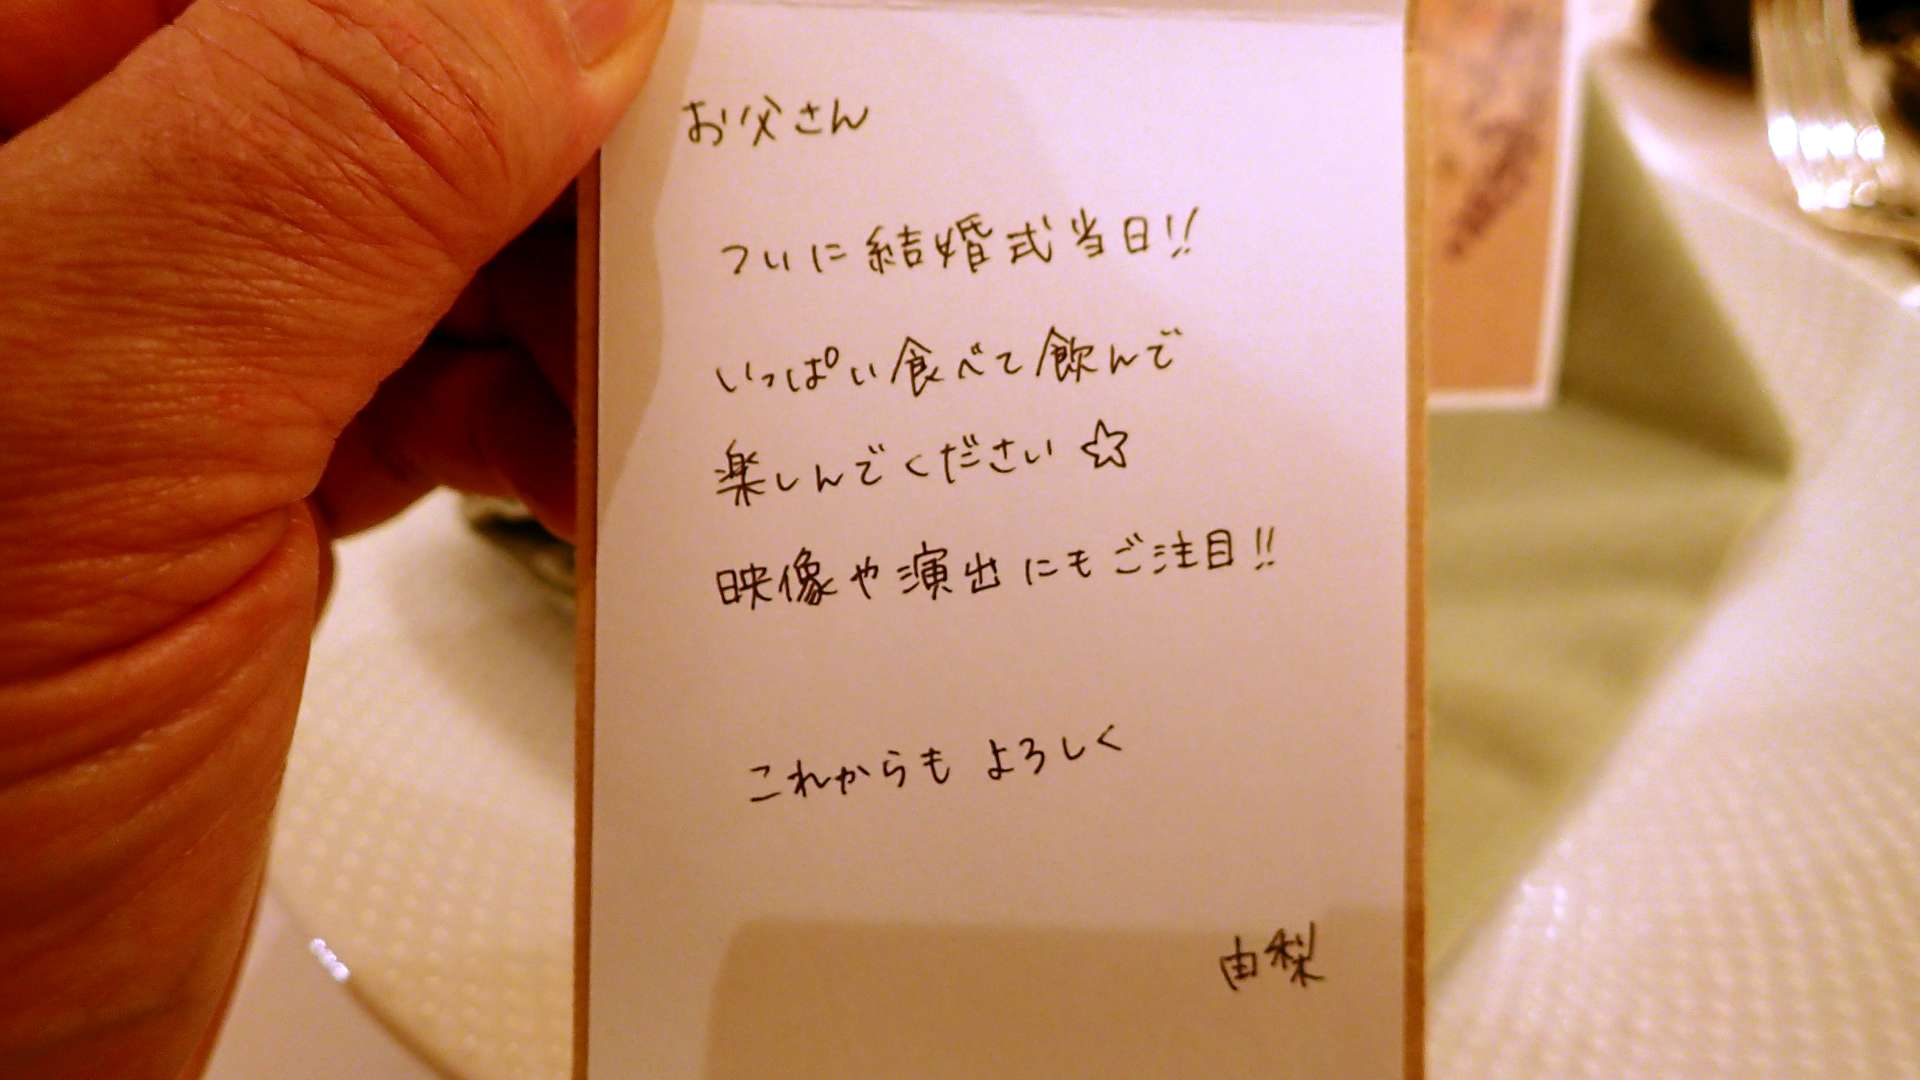 お父さん
ついに結婚式当日!!
いっぱい食べて飲んで
楽しんでください☆
映像や演出にもご注目!!
これからも よろしく
由梨